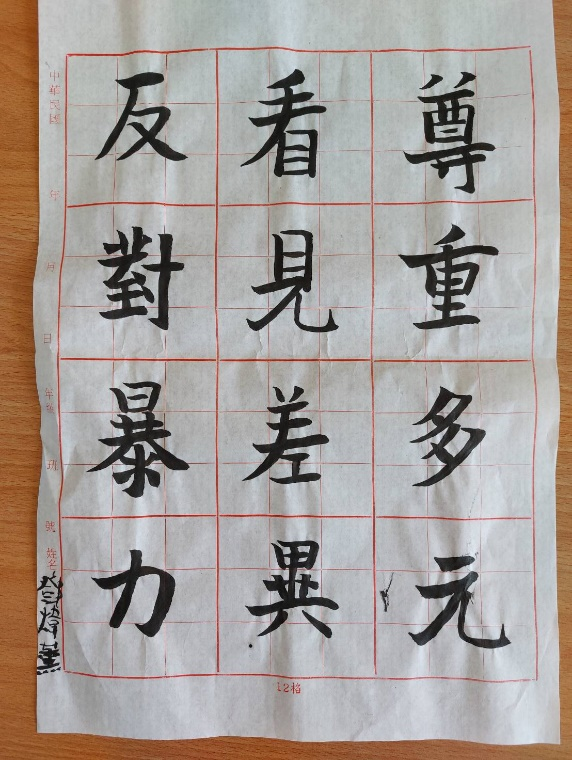 尊重多元
看見差異
反對暴力
中華民國 年 月 日 年級 班 號 姓名
12格